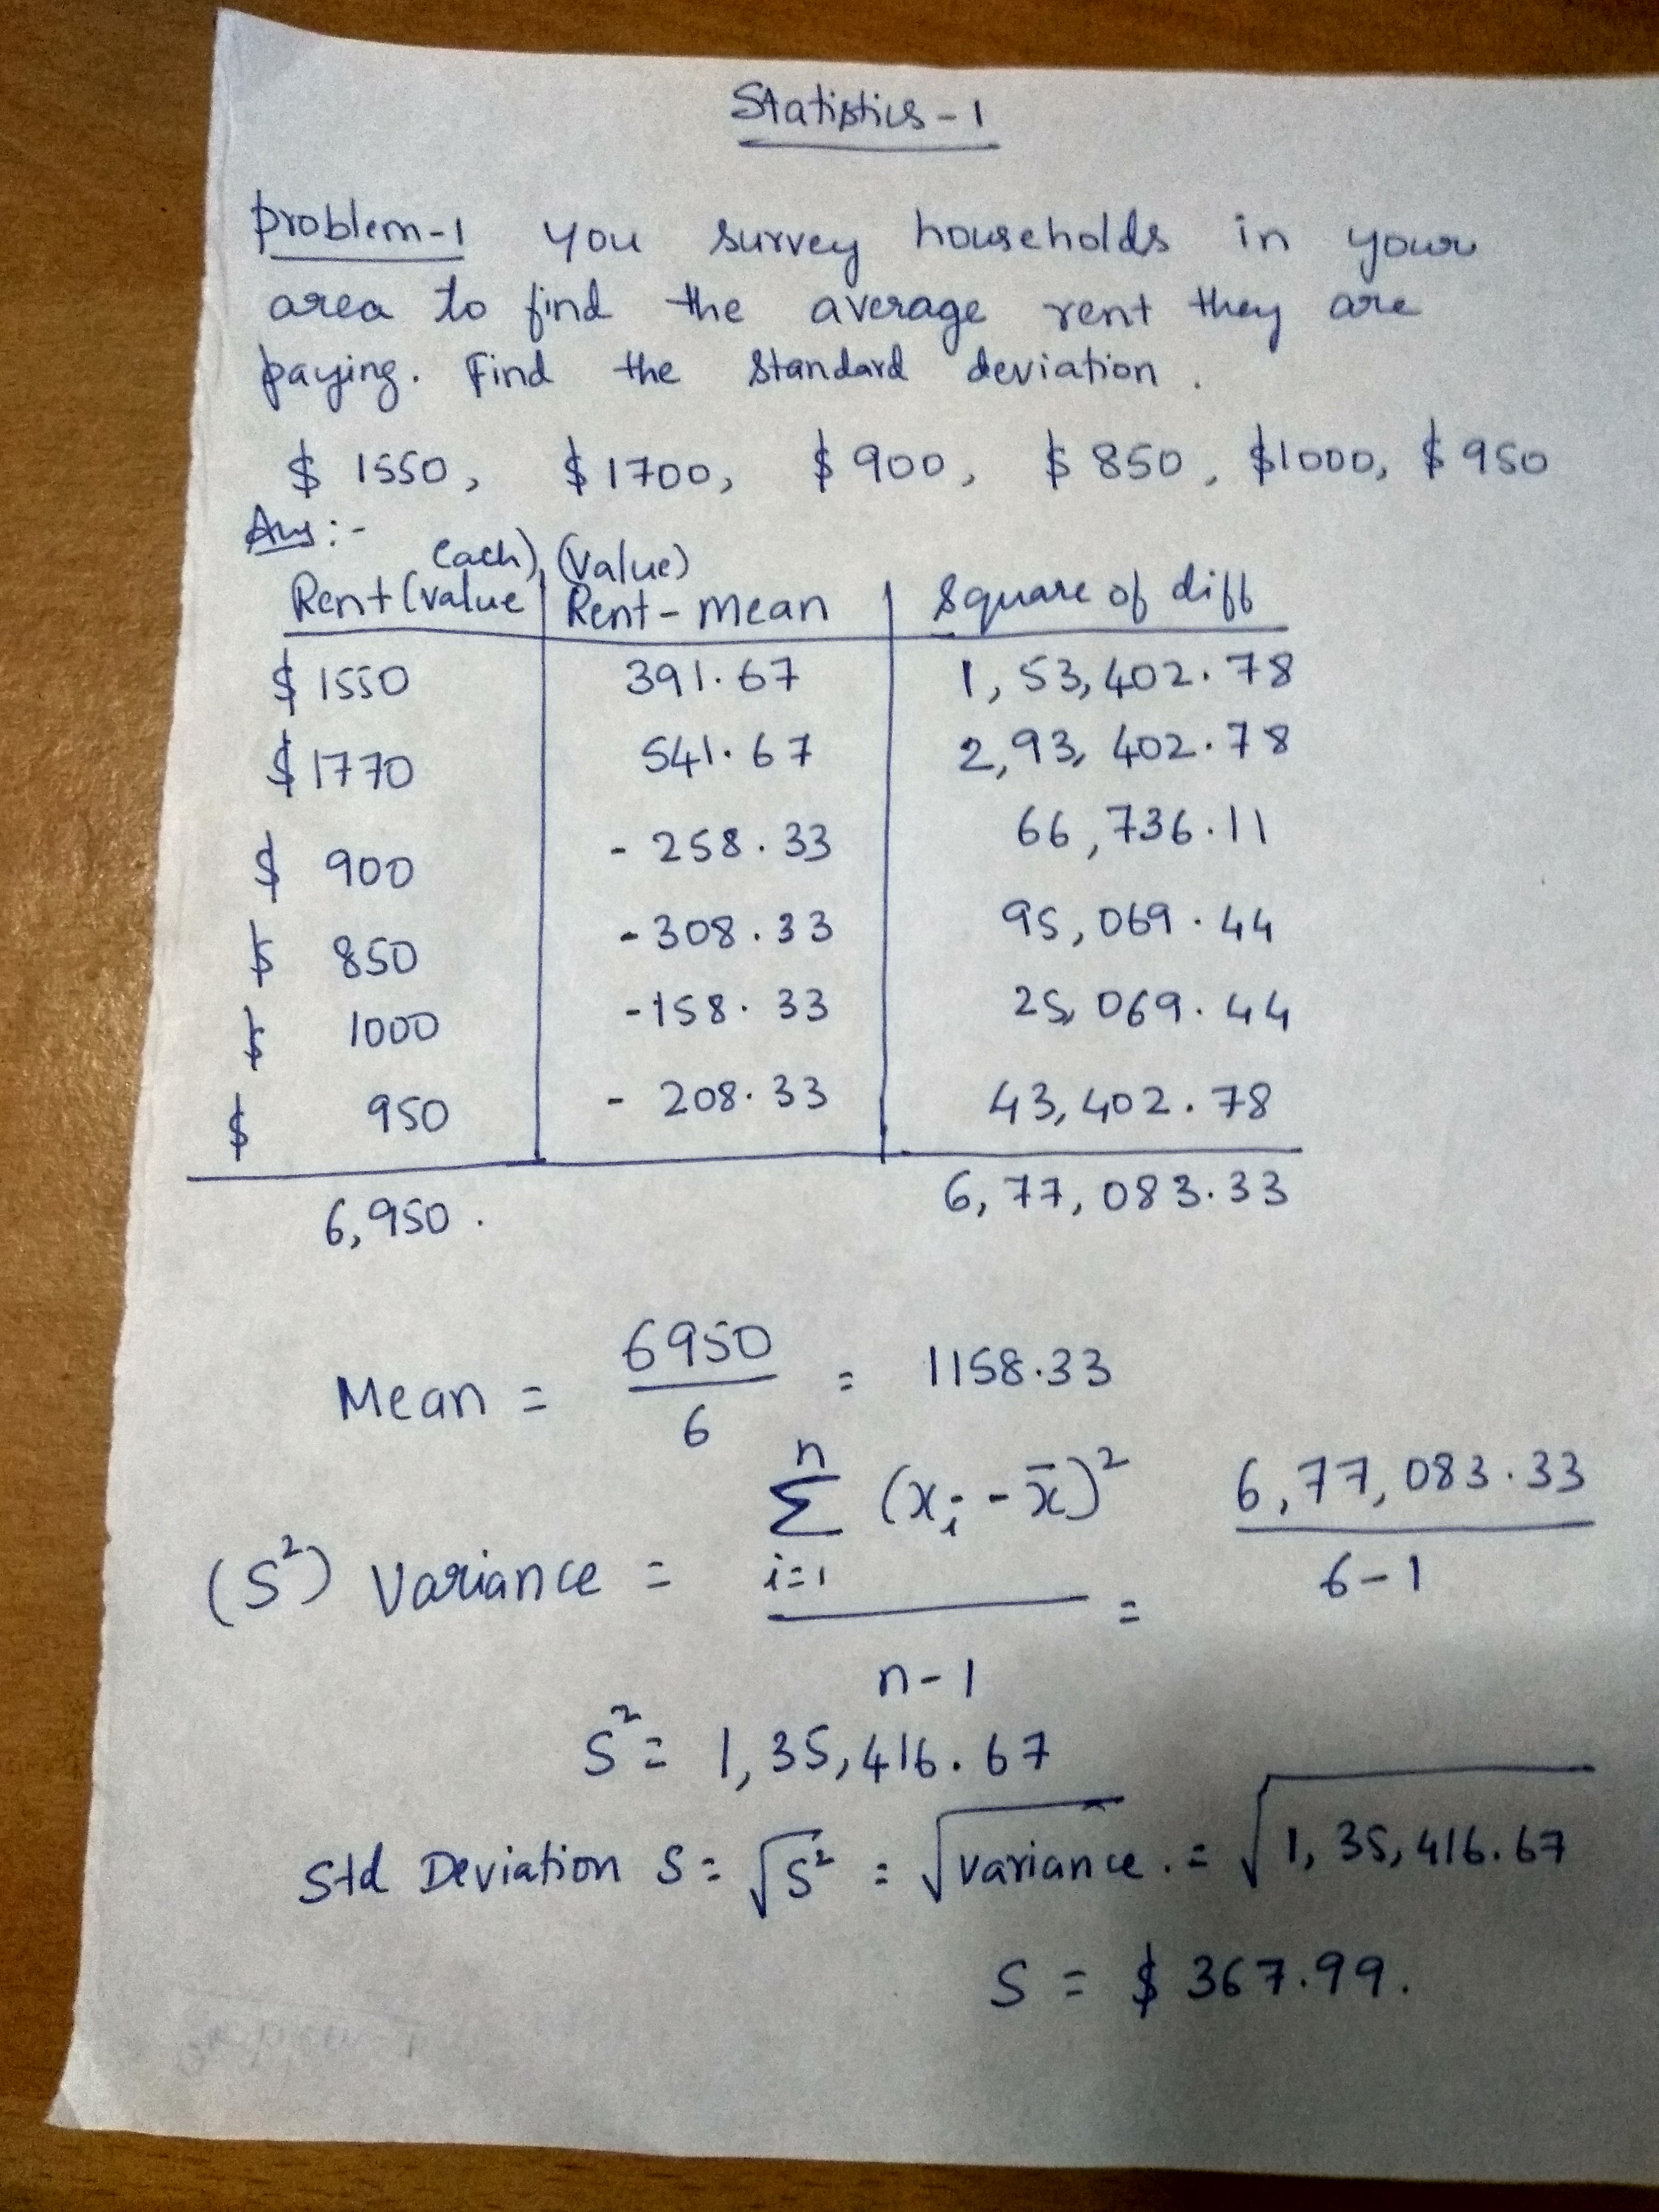 Statistics-1
Problem-1 you survey households in your
area to find the average rent they are
paying. Find the standard deviation.
$ 1550, $1700, $900, $850, $1000, $950
Ans:-
Rent (value each) | (value) Rent - mean | Square of diff
$1550 391.67 1,53,402.78
$1770 541.67 2,93,402.78
$ 900 -258.33 66,736.11
$ 850 -308.33 95,069.44
$ 1000 -158.33 25,069.44
$ 950 -208.33 43,402.78
6,950. 6,77,083.33
Mean = 6950/6 = 1158.33
(S²) Variance = n Σ i=1 (xi - x̄)² / n-1 = 6,77,083.33 / 6-1
S² = 1,35,416.67
Std Deviation S = √S² = √variance. = √1,35,416.67
S = $ 367.99.